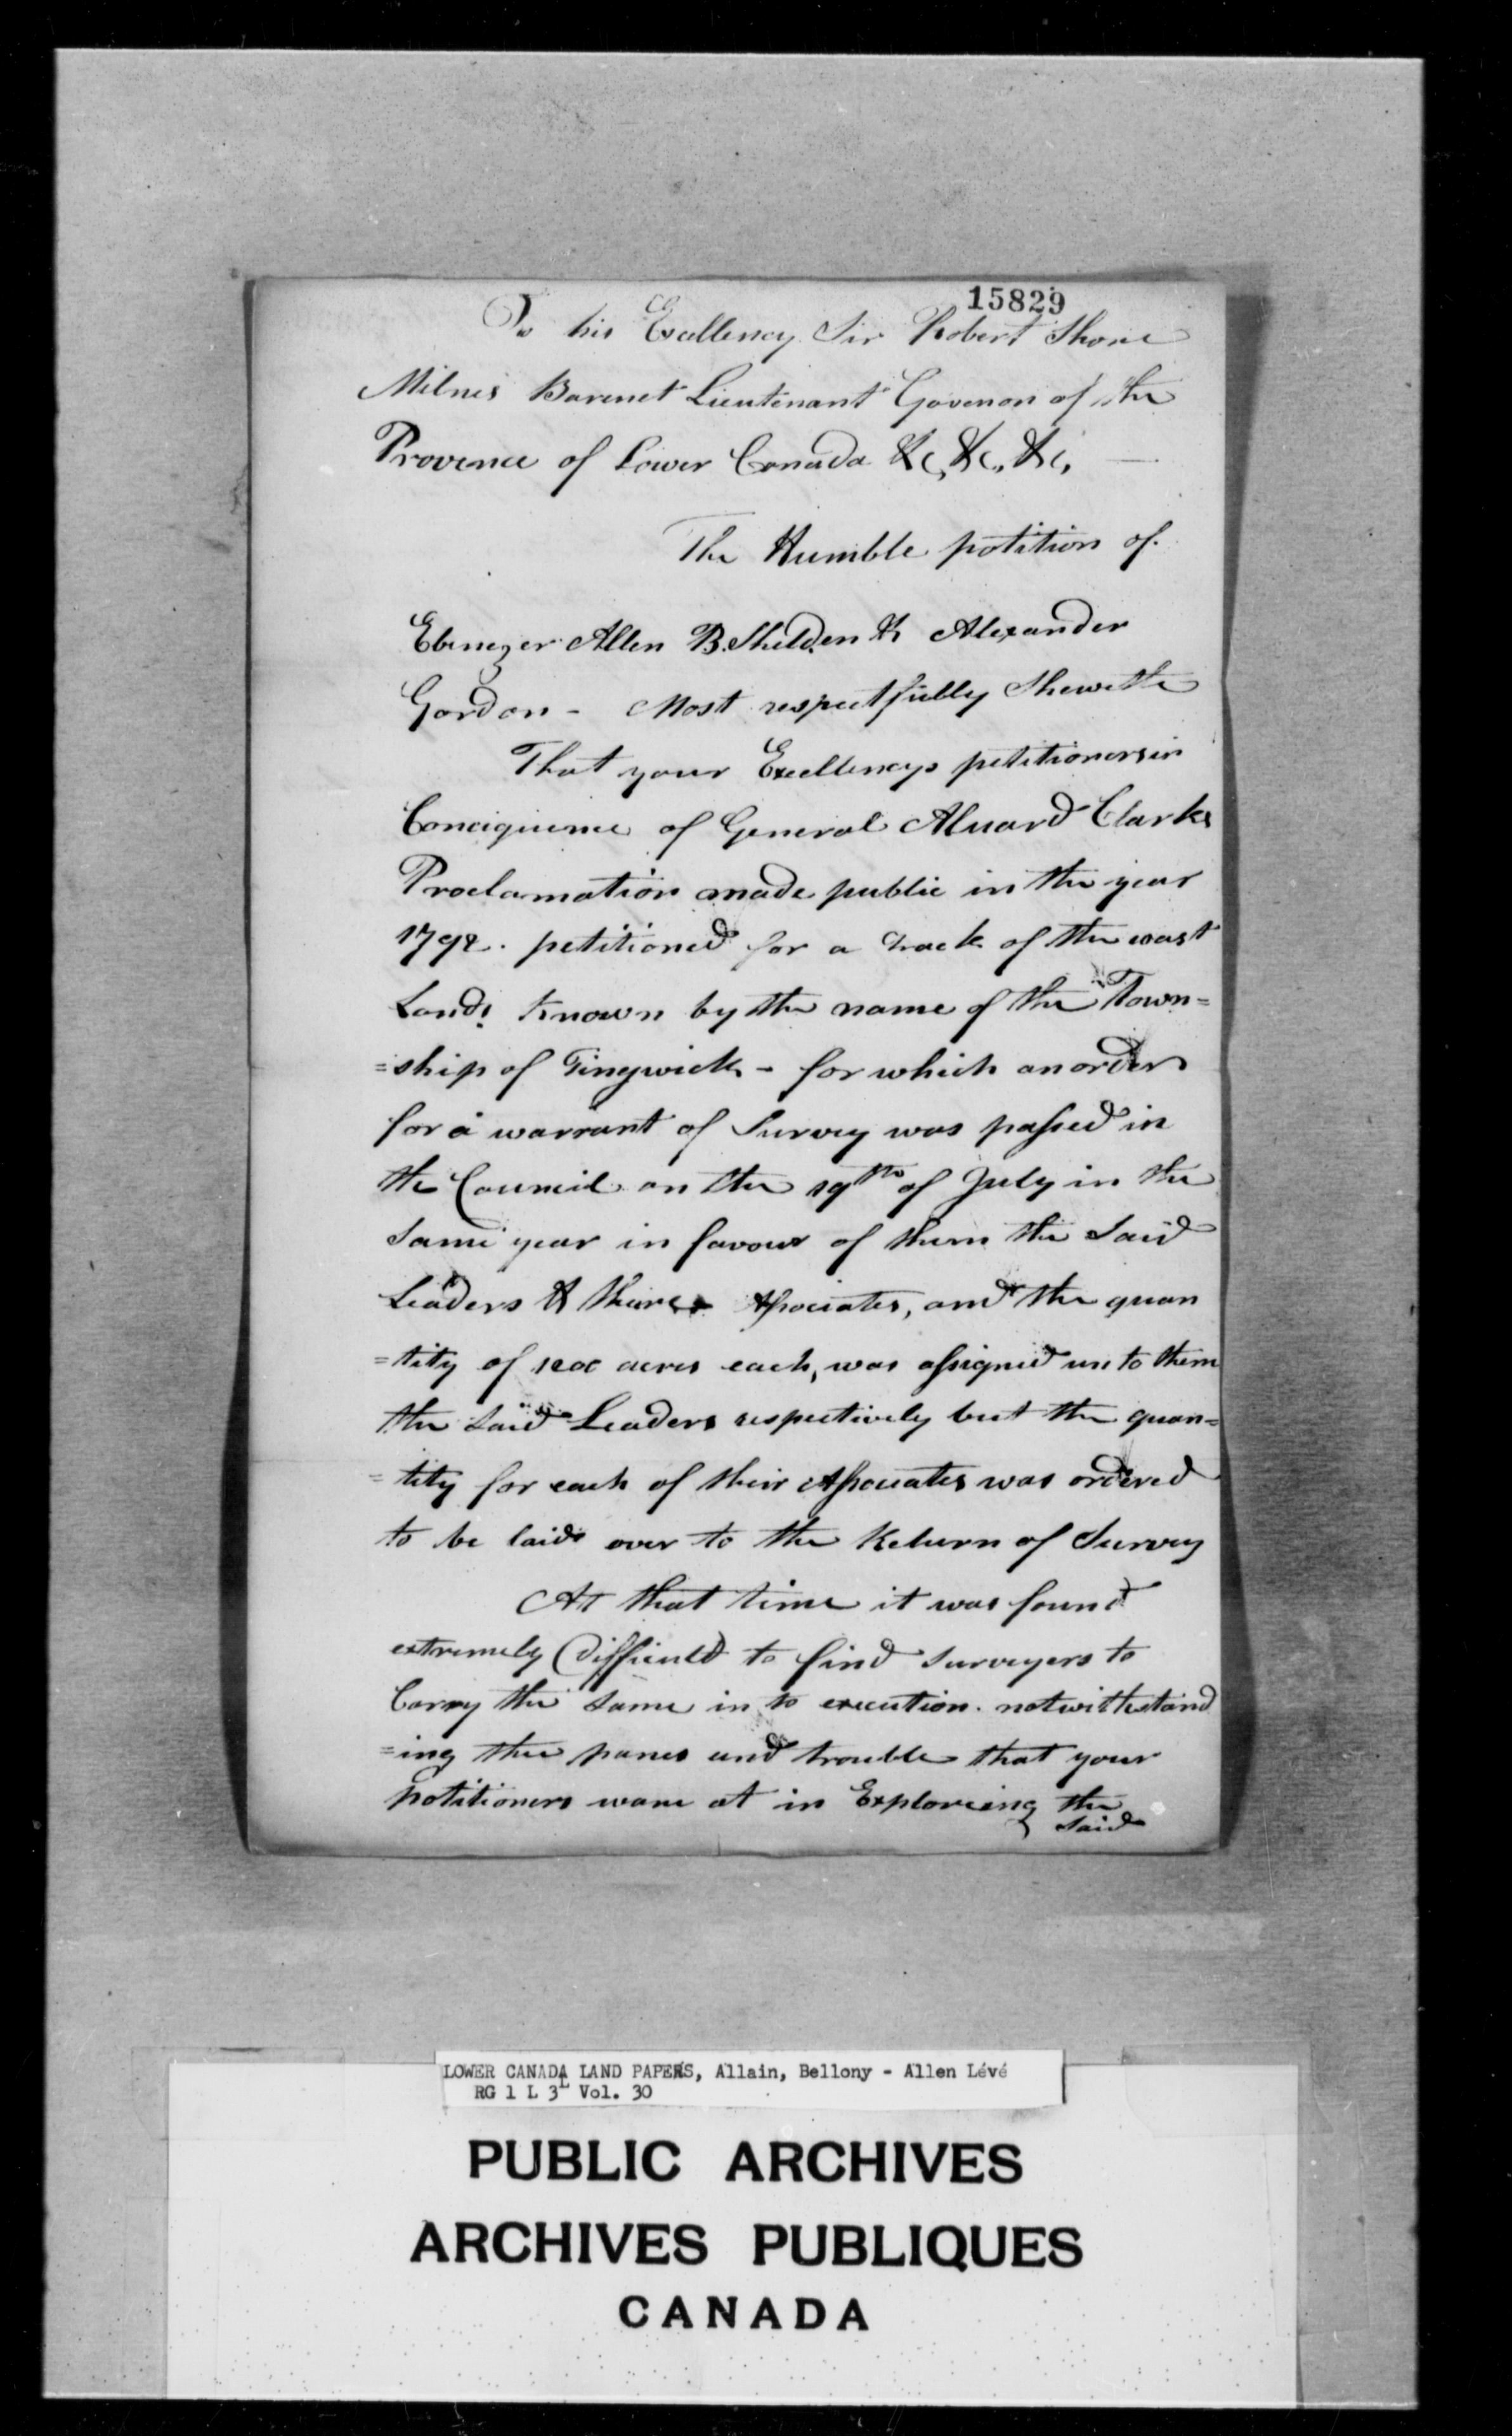 15829
To his Excellency Sir Robert Shore
Milnes Baronet Lieutenant Govenor of the
Provence of Lower Canada &c, &c, &c,
The Humble petition of
Ebenezer Allen B. Shelden & Alexander
Gordon - Most respectfully Sheweth
That your Excellencys petitioners in
Conciquince of General Aluard Clarks
Proclamation made public in the year
1792. petitioned for a track of the wast
Lands known by the name of the Town=
=ship of Tingwick - for which an order
for a warrant of Survey was passed in
the Council on the 19th of July in the
same year in favour of them the said
Leaders & Associates, and the quan
=tity of 1200 acres each, was assigned unto them
the said Leaders respectively but the quan=
=tity for each of their Associates was ordered
to be laid over to the Return of Survey
At that time it was found
extremely Difficuld to find surveyers to
Carry the same in to execution. notwithstand
=ing the panes and trouble that your
petitioners ware at in Exploreing the
said
LOWER CANADA LAND PAPERS, Allain, Bellony - Allen Lévé
RG 1 L 3L Vol. 30
PUBLIC ARCHIVES
ARCHIVES PUBLIQUES
CANADA